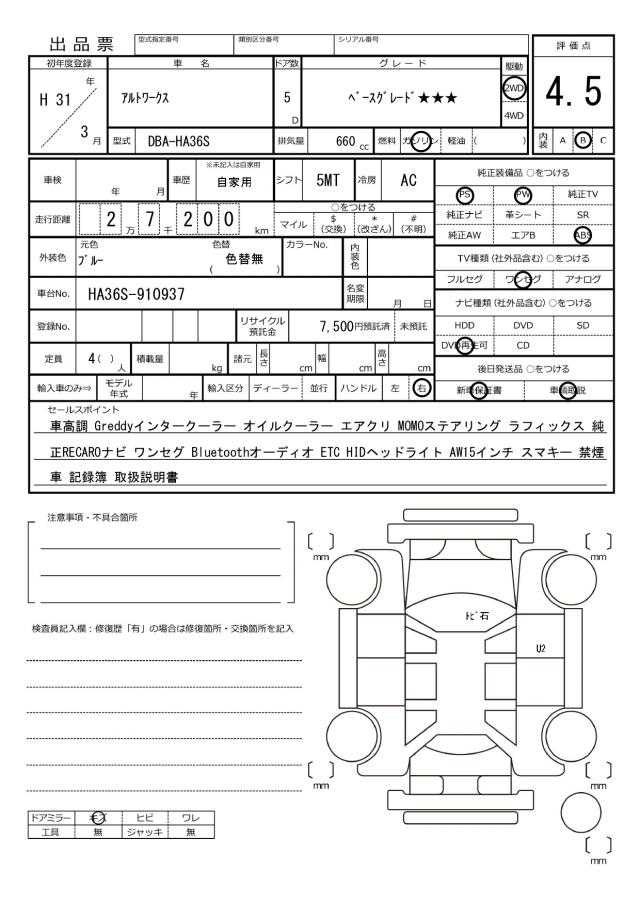 出品票
型式指定番号 類別区分番号 シリアル番号
評価点
4.5
内装 A B C
初年度登録 車名 ドア数 グレード 駆動
H 31 年 3 月
アルトワークス
5 D
ベースグレード★★★
2WD
4WD
型式 DBA-HA36S 排気量 660 cc 燃料 ガソリン 軽油 ( )
車検 年 月 車歴 ※未記入は自家用 自家用 シフト 5MT 冷房 AC
走行距離 2 万 7 千 2 0 0 km
○をつける
マイル $(交換) *(改ざん) #(不明)
外装色 元色 ブルー 色替 ( 色替無 ) カラーNo. 内装色
車台No. HA36S-910937 名変期限 月 日
登録No. リサイクル預託金 7,500円預託済 未預託
定員 4( )人 積載量 kg 諸元 長さ cm 幅 cm 高さ cm
輸入車のみ⇒ モデル年式 年 輸入区分 ディーラー 並行 ハンドル 左 右
純正装備品 ○をつける
PS PW 純正TV
純正ナビ 革シート SR
純正AW エアB ABS
TV種類(社外品含む)○をつける
フルセグ ワンセグ アナログ
ナビ種類(社外品含む)○をつける
HDD DVD SD
DVD再生可 CD
後日発送品 ○をつける
新車保証書 車輌取説
セールスポイント
車高調 Greddyインタークーラー オイルクーラー エアクリ MOMOステアリング ラフィックス 純
正RECAROナビ ワンセグ Bluetoothオーディオ ETC HIDヘッドライト AW15インチ スマキー 禁煙
車 記録簿 取扱説明書
注意事項・不具合箇所
検査員記入欄:修復歴「有」の場合は修復箇所・交換箇所を記入
〔 〕mm
〔 〕mm
トビ石
U2
〔 〕mm
〔 〕mm
〔 〕mm
ドアミラー キズ ヒビ ワレ
工具 無 ジャッキ 無